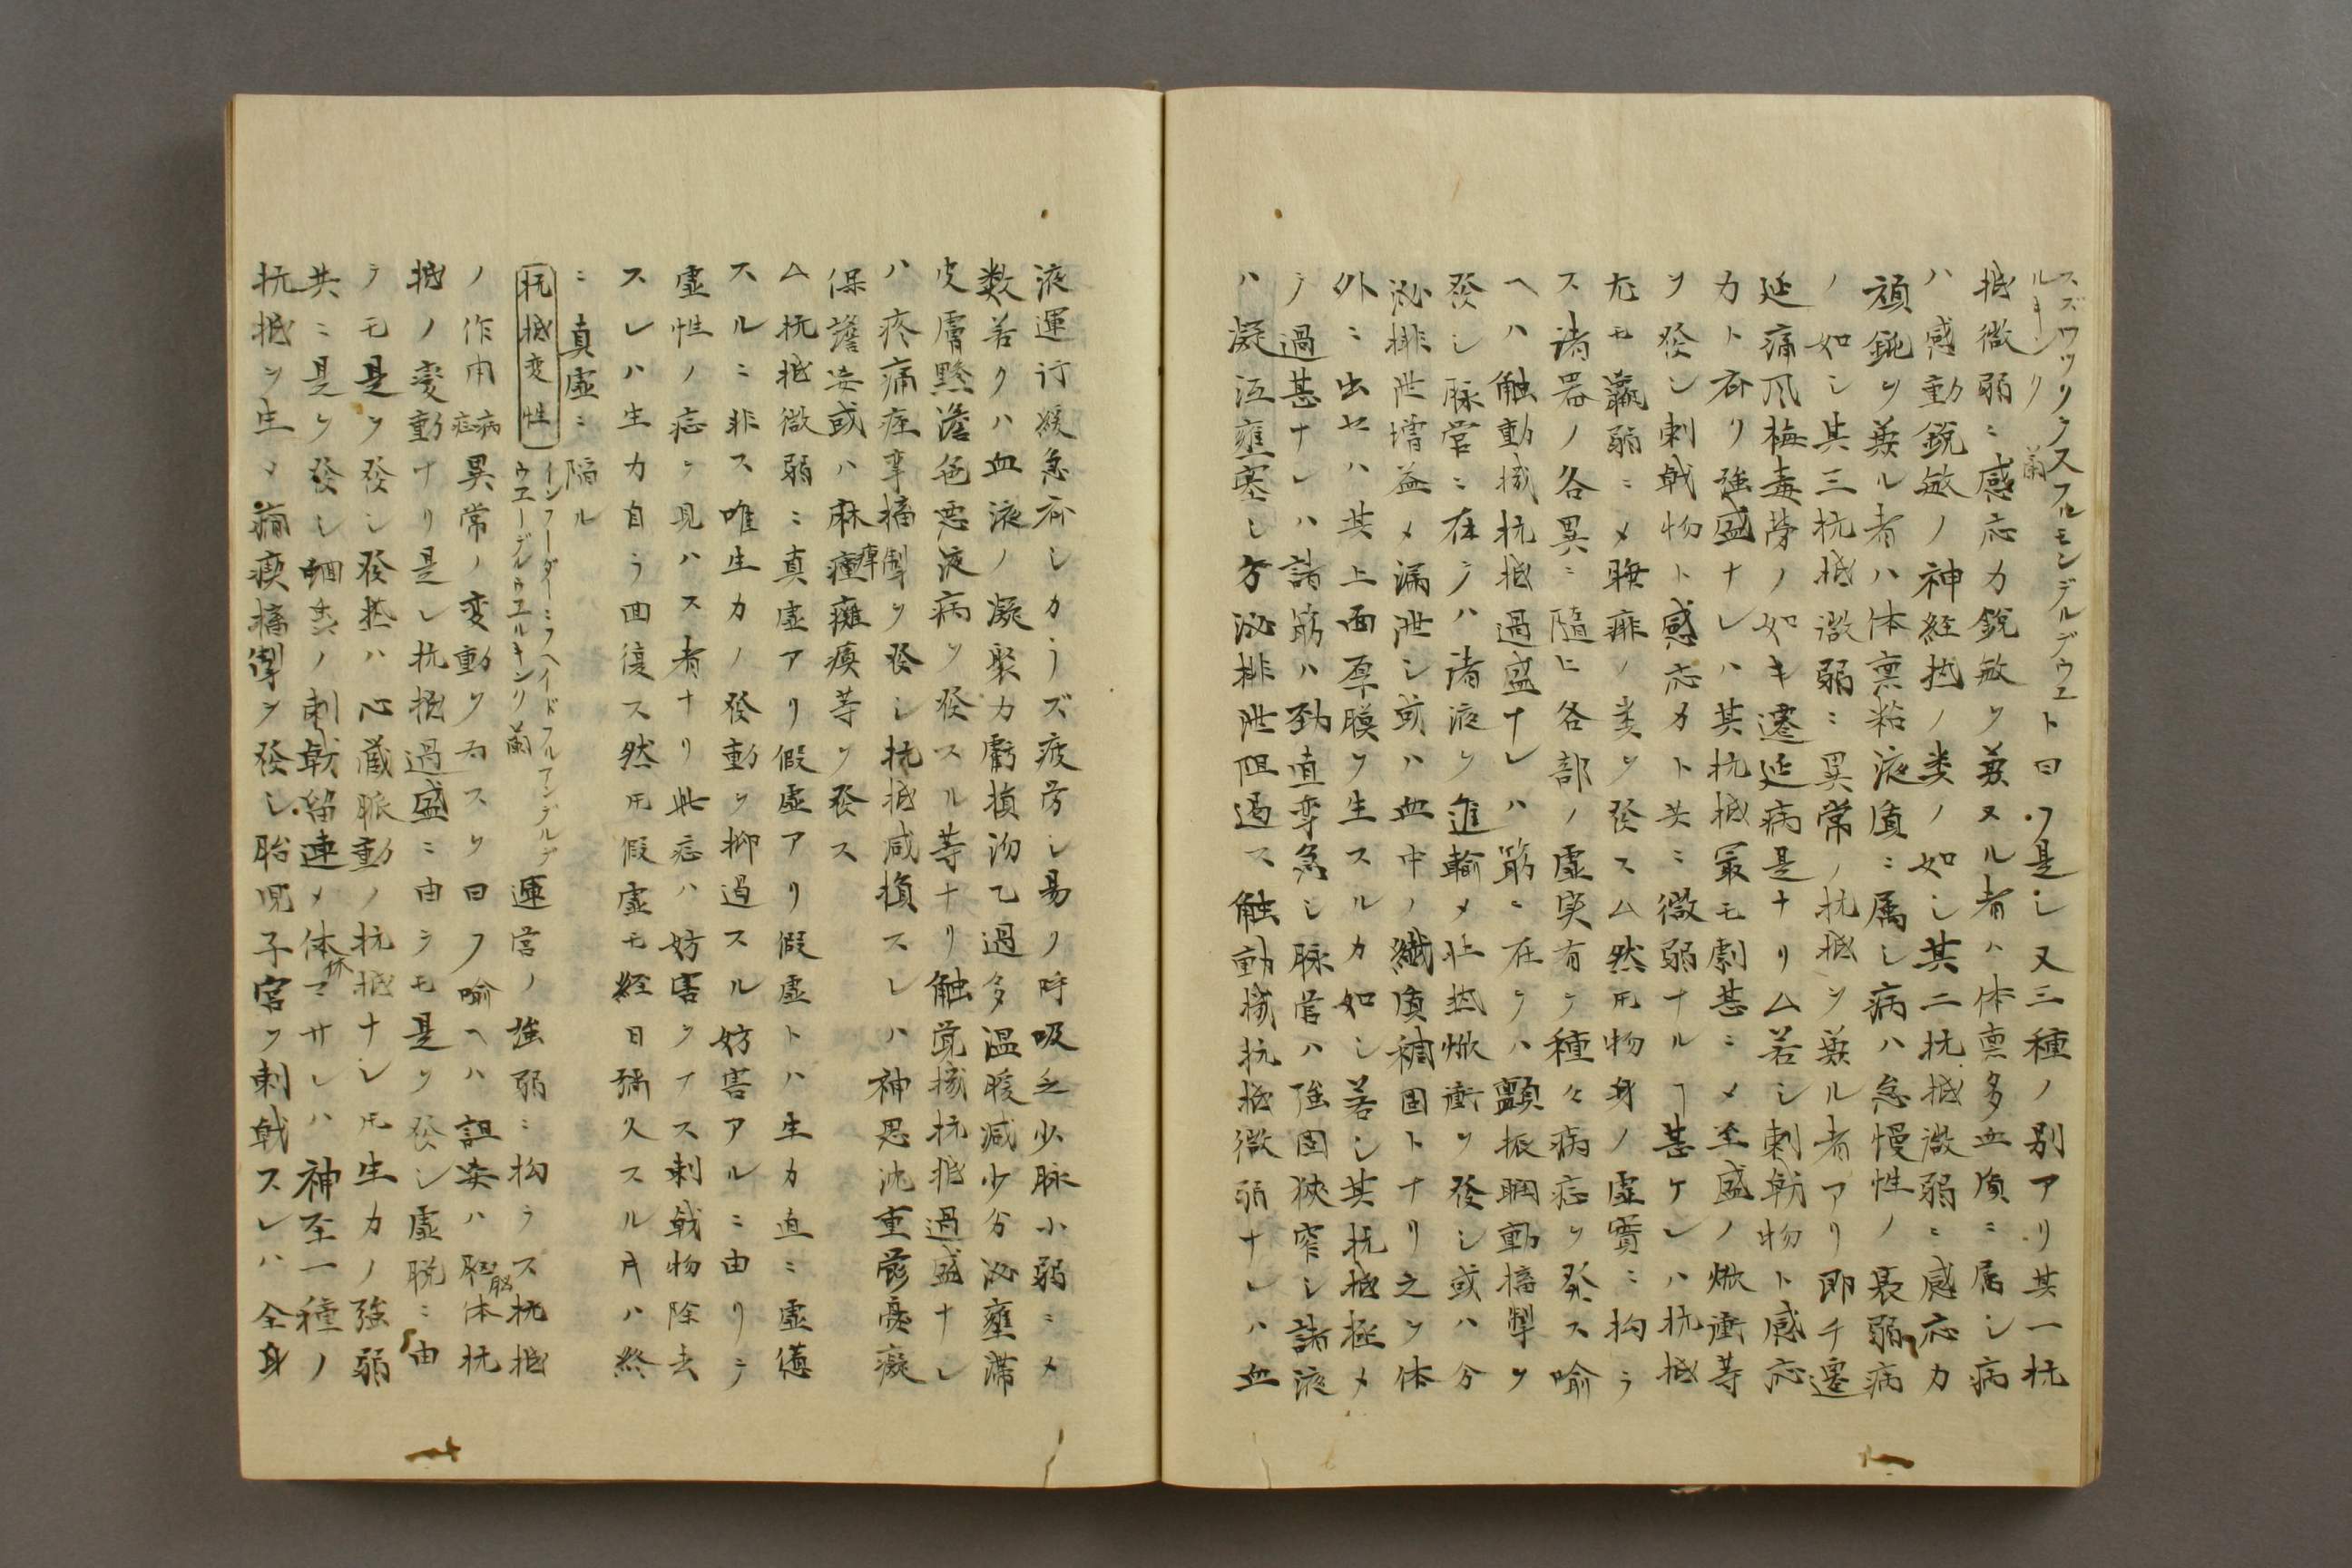 スズワツリクスフルモンデルデウエ
ルキンリ 蘭
ト曰フ是レ又三種ノ別アリ其一抗
抵微弱ニ感応力鋭敏ヲ兼ヌル者ハ体稟多血質ニ属シ病
ハ感動鋭敏ノ神経熱ノ类ノ如シ其二抗抵微弱ニ感応力
頑鈍ヲ兼ル者ハ体稟粘液質ニ属シ病ハ慢性ノ衰弱病
ノ如シ其三抗抵微弱ニ異常ノ抗抵ヲ兼ル者アリ即チ遷
延痛風梅毒労ノ如キ遷延病是ナリ△若シ刺戟物ト感応
力ト夲リ強盛ナレハ其抗抵最モ劇甚ニメ至盛ノ焮衝等
ヲ発シ刺戟物ト感応力ト共ニ微弱ナルヿ甚ケレハ抗抵
尤モ羸弱ニメ㾮痱ノ类ヲ發ス△然𪜈物身ノ虚實ニ拘ラ
ス諸器ノ各異ニ隨ヒ各部ノ虚実有テ種々病症ヲ発ス喻
ヘハ触動機抗抵過盛ナレハ筋ニ在ラハ顫振瞤動搐掣ヲ
發シ脉管ニ在ラハ諸液ヲ進輸メ壮热焮衝ヲ發シ或ハ分
泌排泄増益メ漏泄シ或ハ血中ノ纎質稠固トナリ之ヲ体
外ニ出セハ其上面厚膜ヲ生スルカ如シ若シ其抗抵極メ
テ過甚ナレハ諸筋ハ勁直孿急シ脉管ハ強固狹窄シ諸液
ハ凝冱壅塞シ分泌排泄阻遏ス触動機抗抵微弱ナレハ血
液運行緩急夲シカラズ疲労シ易ク呼吸乏少脉小弱ニメ
数若クハ血液ノ凝聚力虧損沕乙過多温暖減少分泌壅滞
皮膚黯澹色悪液病ヲ發スル等ナリ触覚機抗抵過盛ナレ
ハ疼痛痙孿搐掣ヲ發シ抗抵減損スレハ神思沈重昏憒癡
保譫妄或ハ麻痺癱瘓等ヲ發ス
△抗抵微弱ニ真虚アリ假虚アリ假虚トハ生力直ニ虚憊
スルニ非ス唯生力ノ發動ヲ抑遏スル妨害アルニ由リテ
虚性ノ症ヲ見ハス者ナリ此症ハ妨害ヲナス刺戟物除去
スレハ生力自ラ回復ス然𪜈假虚モ経日彌久スル𪜈ハ終
ニ真虚ニ陥ル
抗抵変性 インフーダーミフヘイドフルアンデルデ
ウエーデルウエルキンリ 蘭 運営ノ強弱ニ拘ラス抗抵
ノ作用病症異常ノ変動ヲ為スヲ曰フ喻ヘハ詛妄ハ脳体抗
抵ノ変動ナリ是レ抗抵過盛ニ由ラモ是ヲ發シ虚脱ニ由
ラモ是ヲ發シ發热ハ心蔵脈動ノ抗抵ナレ𪜈生力ノ強弱
共ニ是ヲ發シ蛔虫ノ刺戟留連メ休マサレハ神至一種ノ
抗抵ヲ生メ癇瘈搐掣ヲ發シ胎児子宮ヲ刺戟スレハ全身